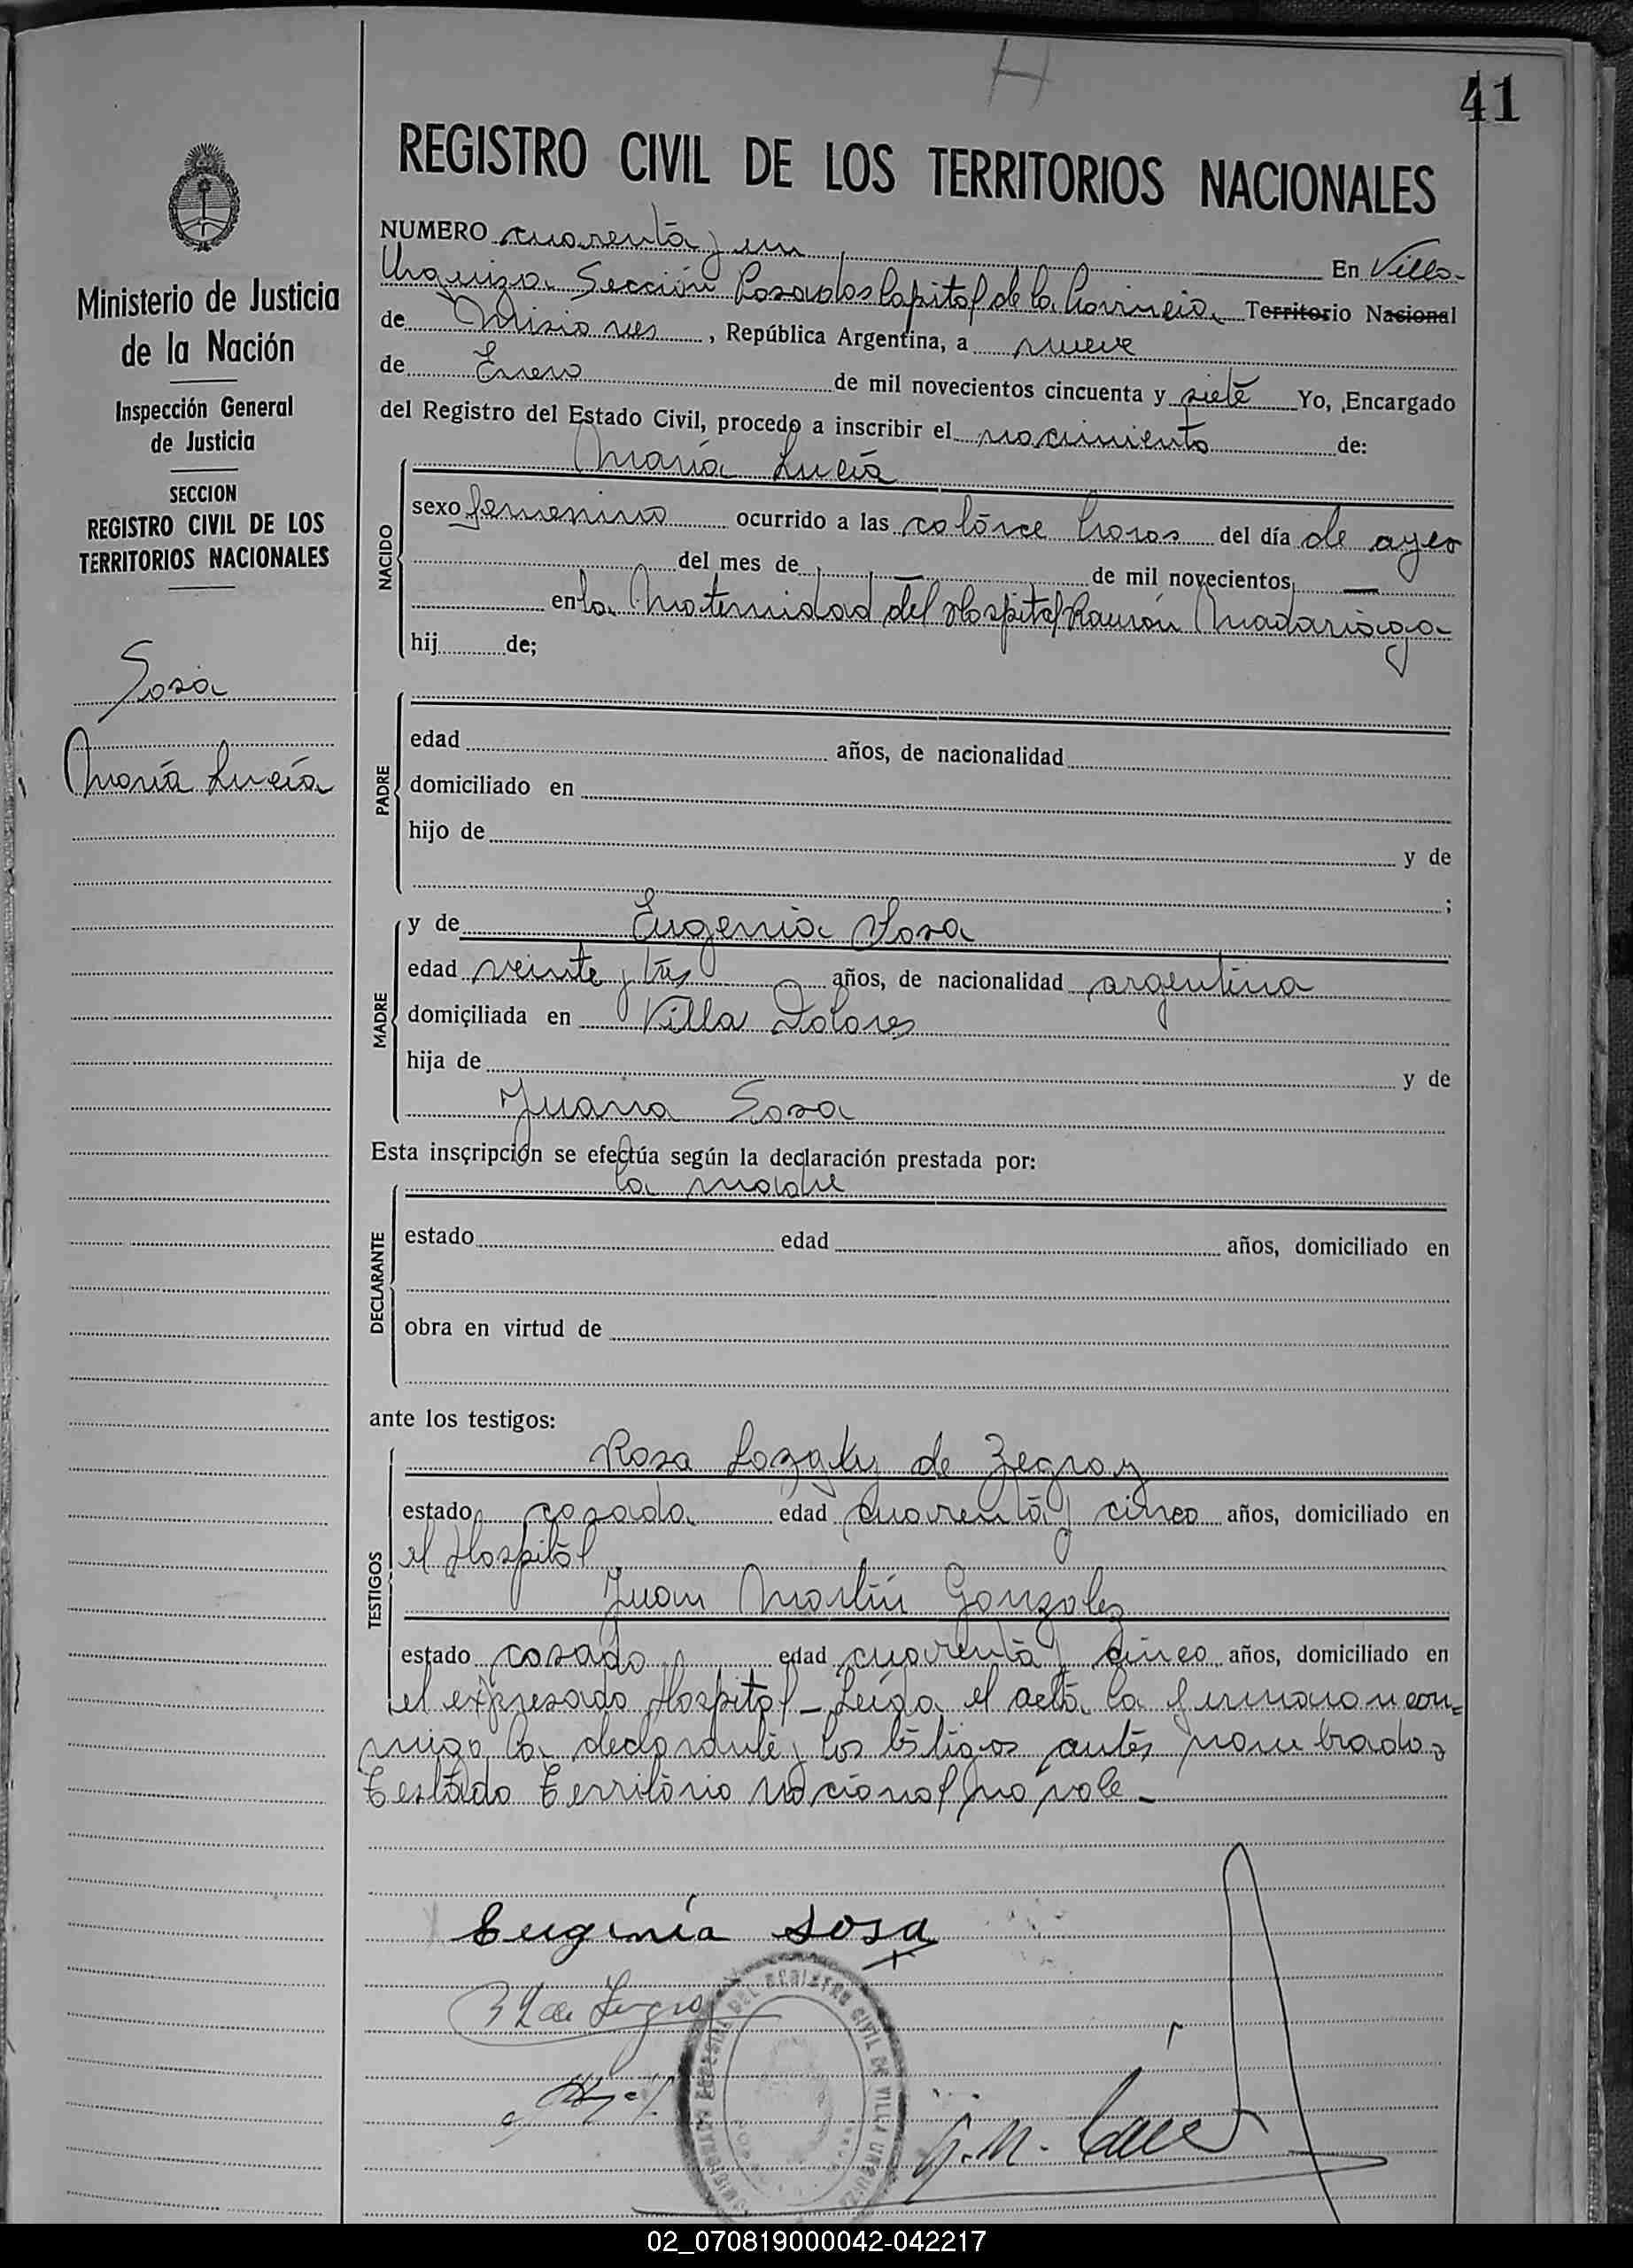 41
REGISTRO CIVIL DE LOS TERRITORIOS NACIONALES
Ministerio de Justicia
de la Nación
Inspección General
de Justicia
SECCION
REGISTRO CIVIL DE LOS
TERRITORIOS NACIONALES
Sosa
María Lucía
NUMERO cuarenta y un En Villa
Urquiza Sección Posadas Capital de la Provincia Territorio Nacional
de Misiones, República Argentina, a nueve
de Enero de mil novecientos cincuenta y siete Yo, Encargado
del Registro del Estado Civil, procedo a inscribir el nacimiento de:
María Lucía
NACIDO
sexo femenino ocurrido a las catorce horas del día de ayer
del mes de — de mil novecientos —
en la Maternidad del Hospital Ramón Madariaga
hij de;
PADRE
edad años, de nacionalidad
domiciliado en
hijo de y de
;
MADRE
y de Eugenia Sosa
edad veinte y tres años, de nacionalidad argentina
domiciliada en Villa Dolores
hija de y de
Juana Sosa
Esta inscripción se efectúa según la declaración prestada por:
DECLARANTE
la madre
estado edad años, domiciliado en
obra en virtud de
ante los testigos:
TESTIGOS
Rosa de
estado casada edad cuarenta y cinco años, domiciliado en
el Hospital
Juan Martín Gonzalez
estado casado edad cuarenta y cinco años, domiciliado en
el expresado Hospital – Leída el acta la firmaron con=
migo la declarante y los testigos antes nombrados
Testado Territorio nacional no vale –
Eugenia Sosa
DEL REGISTRO CIVIL DE VILLA URQUIZA
02_070819000042-042217